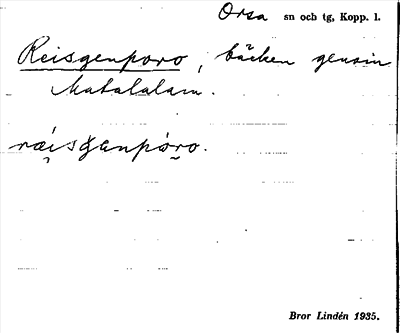 Orsa sn och tg, Kopp. l.
Reisgenporo, bäcken genom
Matalalam.
ræi̯sǥenpåro.
Bror Lindén 1935.